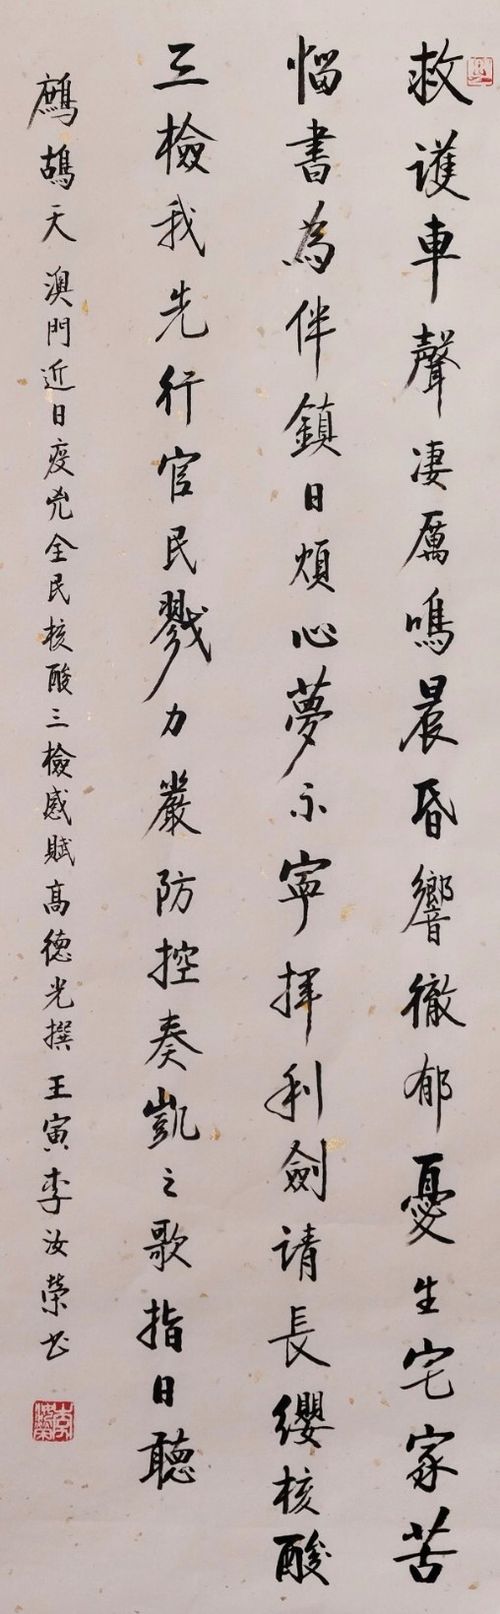 救護車聲凄厲鳴晨昏響徹郁憂生宅家苦
惱書為伴鎮日煩心夢不寧揮利劍請長纓核酸
三檢我先行官民戮力嚴防控奏凱之歌指日聽
鷓鴣天 澳門近日疫兇全民核酸三檢感賦高德光撰 王寅李汝榮书